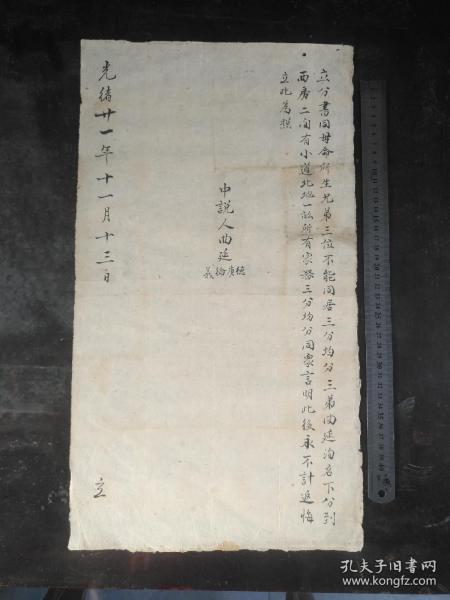 立分書同母命所生兄弟三位不能同居三分均分三弟曲延洵名下分到
西房二间有小道北地一畝所有家器三分均分同衆言明此後永不計追悔
立此為照
中説人曲延
德廣倫義
光緒廿一年十一月十三日
立
孔夫子旧書网
www.kongfz.com